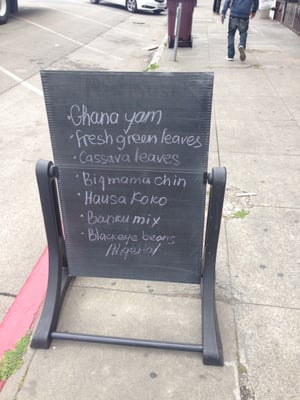 · Ghana yam
· fresh green leaves
· Cassava leaves
· Bigmama chin
· Hausa Koko
· Banku mix
· Blackeye beans
(Nigeria)